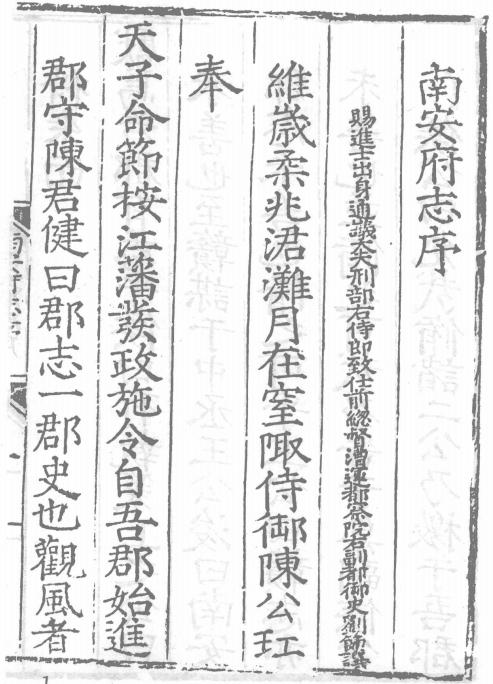 南安府志序
賜進士出身通議大夫刑部右侍郎致仕前緫督漕運都察院右副都御史劉節譔
維歲柔兆涒灘月在窒陬侍御陳公玒
奉
天子命節按江藩發政施令自吾郡始進
郡守陳君健曰郡志一郡史也觀風者